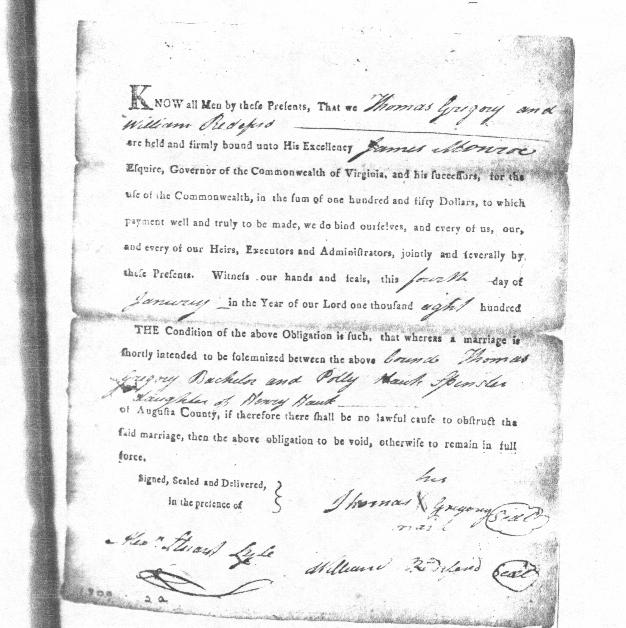 KNOW all Men by these Presents, That we Thomas Gregory and
William
are held and firmly bound unto His Excellency James Monroe
Esquire, Governor of the Commonwealth of Virginia, and his successors, for the
use of the Commonwealth, in the sum of one hundred and fifty Dollars, to which
payment well and truly to be made, we do bind ourselves, and every of us, our,
and every of our Heirs, Executors and Administrators, jointly and severally by
these Presents. Witness our hands and seals, this fourth day of
January in the Year of our Lord one thousand eight hundred
THE Condition of the above Obligation is such, that whereas a marriage is
shortly intended to be solemnized between the above bound Thomas
Gregory Bachelor and Polly Hauk Spinster
daughter of Henry Hauk
of Augusta County, if therefore there shall be no lawful cause to obstruct the
said marriage, then the above obligation to be void, otherwise to remain in full
force.
Signed, Sealed and Delivered,
in the presence of
his
Thomas X Gregory Seal
mark
Stuart Lyle
William Seal